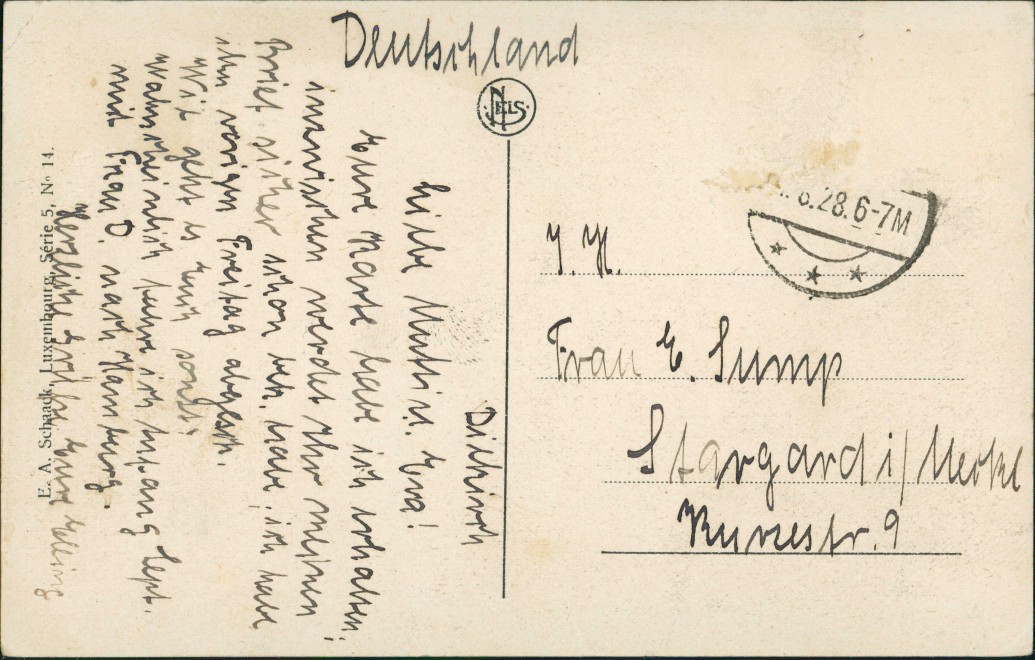 Deutschland
NELS
Diekirch
Liebe Mutti u. Eva!
Eure Karte habe ich erhalten,
inzwischen werdet Ihr meinen
Brief sicher schon bek. habe, ich habe
ihn vorigen Freitag abgesch.
Wie geht es Euch sonst?
Wahrscheinlich fahre ich Anfang Sept.
mit Frau D. nach Hamburg.
Herzlichst grüßt Eure
E. A. Schaack, Luxembourg, Série 5, No 14.
8.28.6-7M
Frau E. Sump
Stargard i/Meckl
Kurzestr. 9